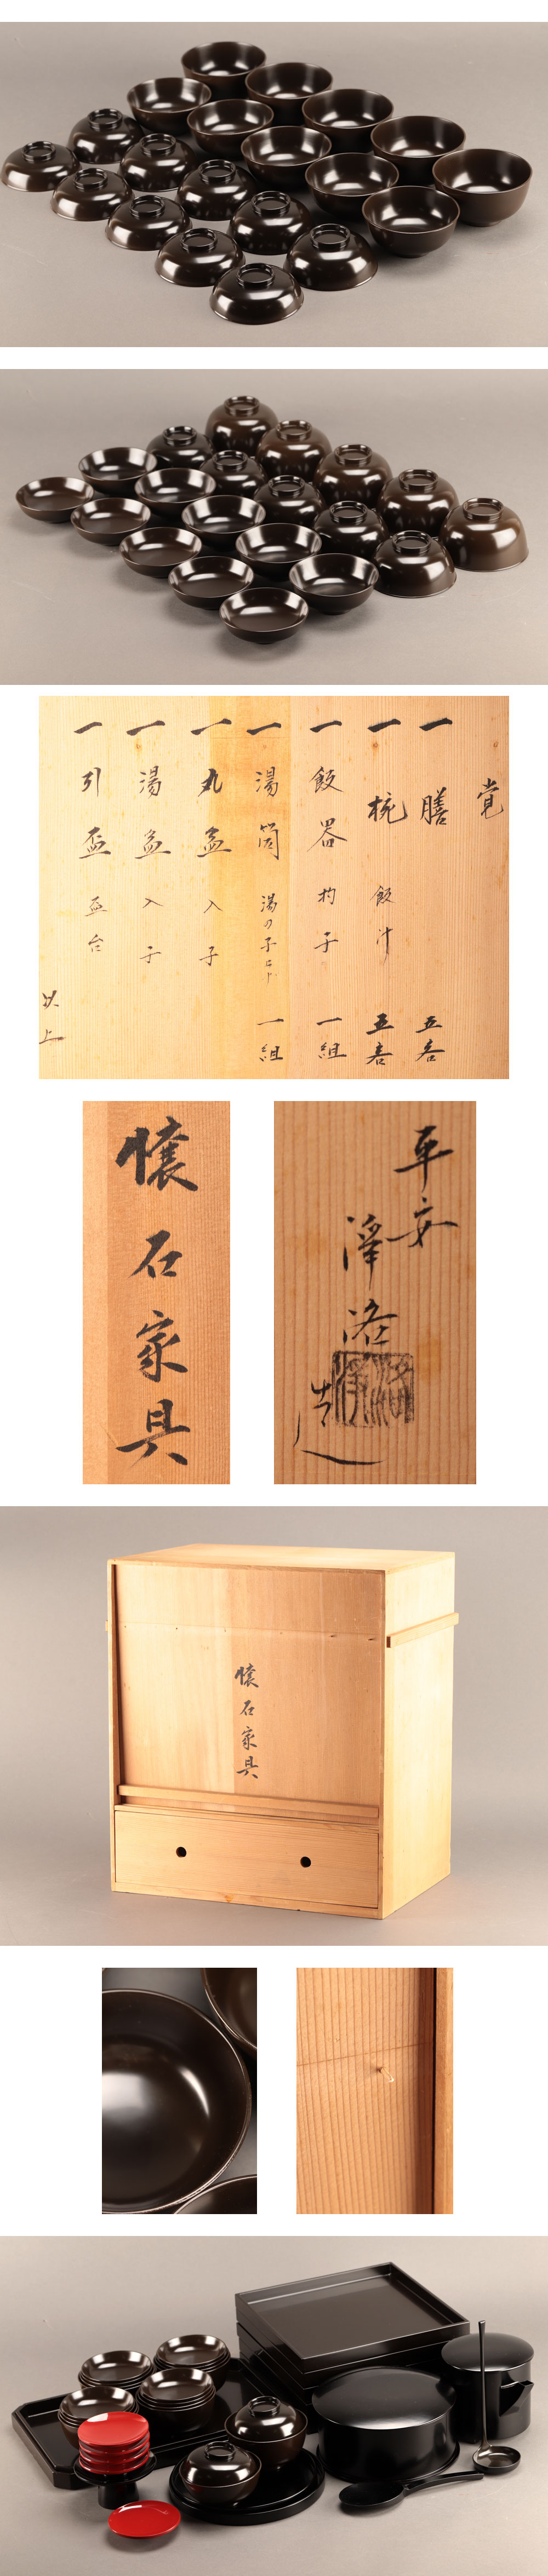 覚
一 膳 五客
一 椀 飯汁 五客
一 飯器 杓子 一組
一 湯筒 湯の子片 一組
一 丸盆 入子
一 湯盆 入子
一 引盃 盃台
以上
懐石家具
平安
浄洛
造
懐石家具